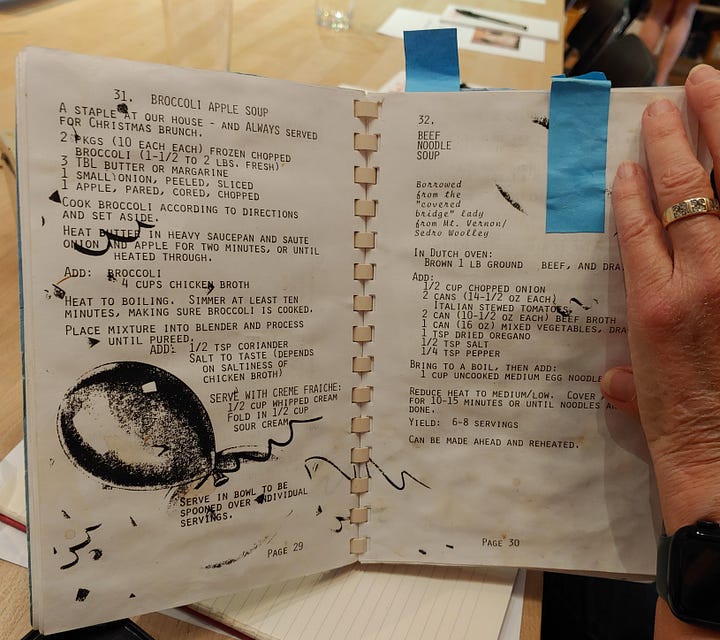 31. BROCCOLI APPLE SOUP
A STAPLE AT OUR HOUSE - AND ALWAYS SERVED
FOR CHRISTMAS BRUNCH.
2 PKGS (10 EACH EACH) FROZEN CHOPPED
BROCCOLI (1-1/2 TO 2 LBS. FRESH)
3 TBL BUTTER OR MARGARINE
1 SMALL ONION, PEELED, SLICED
1 APPLE, PARED, CORED, CHOPPED
COOK BROCCOLI ACCORDING TO DIRECTIONS
AND SET ASIDE.
HEAT BUTTER IN HEAVY SAUCEPAN AND SAUTE
ONION AND APPLE FOR TWO MINUTES, OR UNTIL
HEATED THROUGH.
ADD: BROCCOLI
4 CUPS CHICKEN BROTH
HEAT TO BOILING. SIMMER AT LEAST TEN
MINUTES, MAKING SURE BROCCOLI IS COOKED.
PLACE MIXTURE INTO BLENDER AND PROCESS
UNTIL PUREED.
ADD: 1/2 TSP CORIANDER
SALT TO TASTE (DEPENDS
ON SALTINESS OF
CHICKEN BROTH)
SERVE WITH CREME FRAICHE:
1/2 CUP WHIPPED CREAM
FOLD IN 1/2 CUP
SOUR CREAM
SERVE IN BOWL TO BE
SPOONED OVER INDIVIDUAL
SERVINGS.
PAGE 29
32.
BEEF
NOODLE
SOUP
Borrowed
from the
"covered
bridge" lady
from Mt. Vernon/
Sedro Woolley
IN DUTCH OVEN:
BROWN 1 LB GROUND BEEF, AND
ADD:
1/2 CUP CHOPPED ONION
2 CANS (14-1/2 OZ EACH)
ITALIAN STEWED TOMATOES
2 CAN (10-1/2 OZ EACH) BEEF BROTH
1 CAN (16 OZ) MIXED VEGETABLES,
1 TSP DRIED OREGANO
1/2 TSP SALT
1/4 TSP PEPPER
BRING TO A BOIL, THEN ADD:
1 CUP UNCOOKED MEDIUM EGG NOODLE
REDUCE HEAT TO MEDIUM/LOW. COVER
FOR 10-15 MINUTES OR UNTIL NOODLES
DONE.
YIELD: 6-8 SERVINGS
CAN BE MADE AHEAD AND REHEATED.
PAGE 30